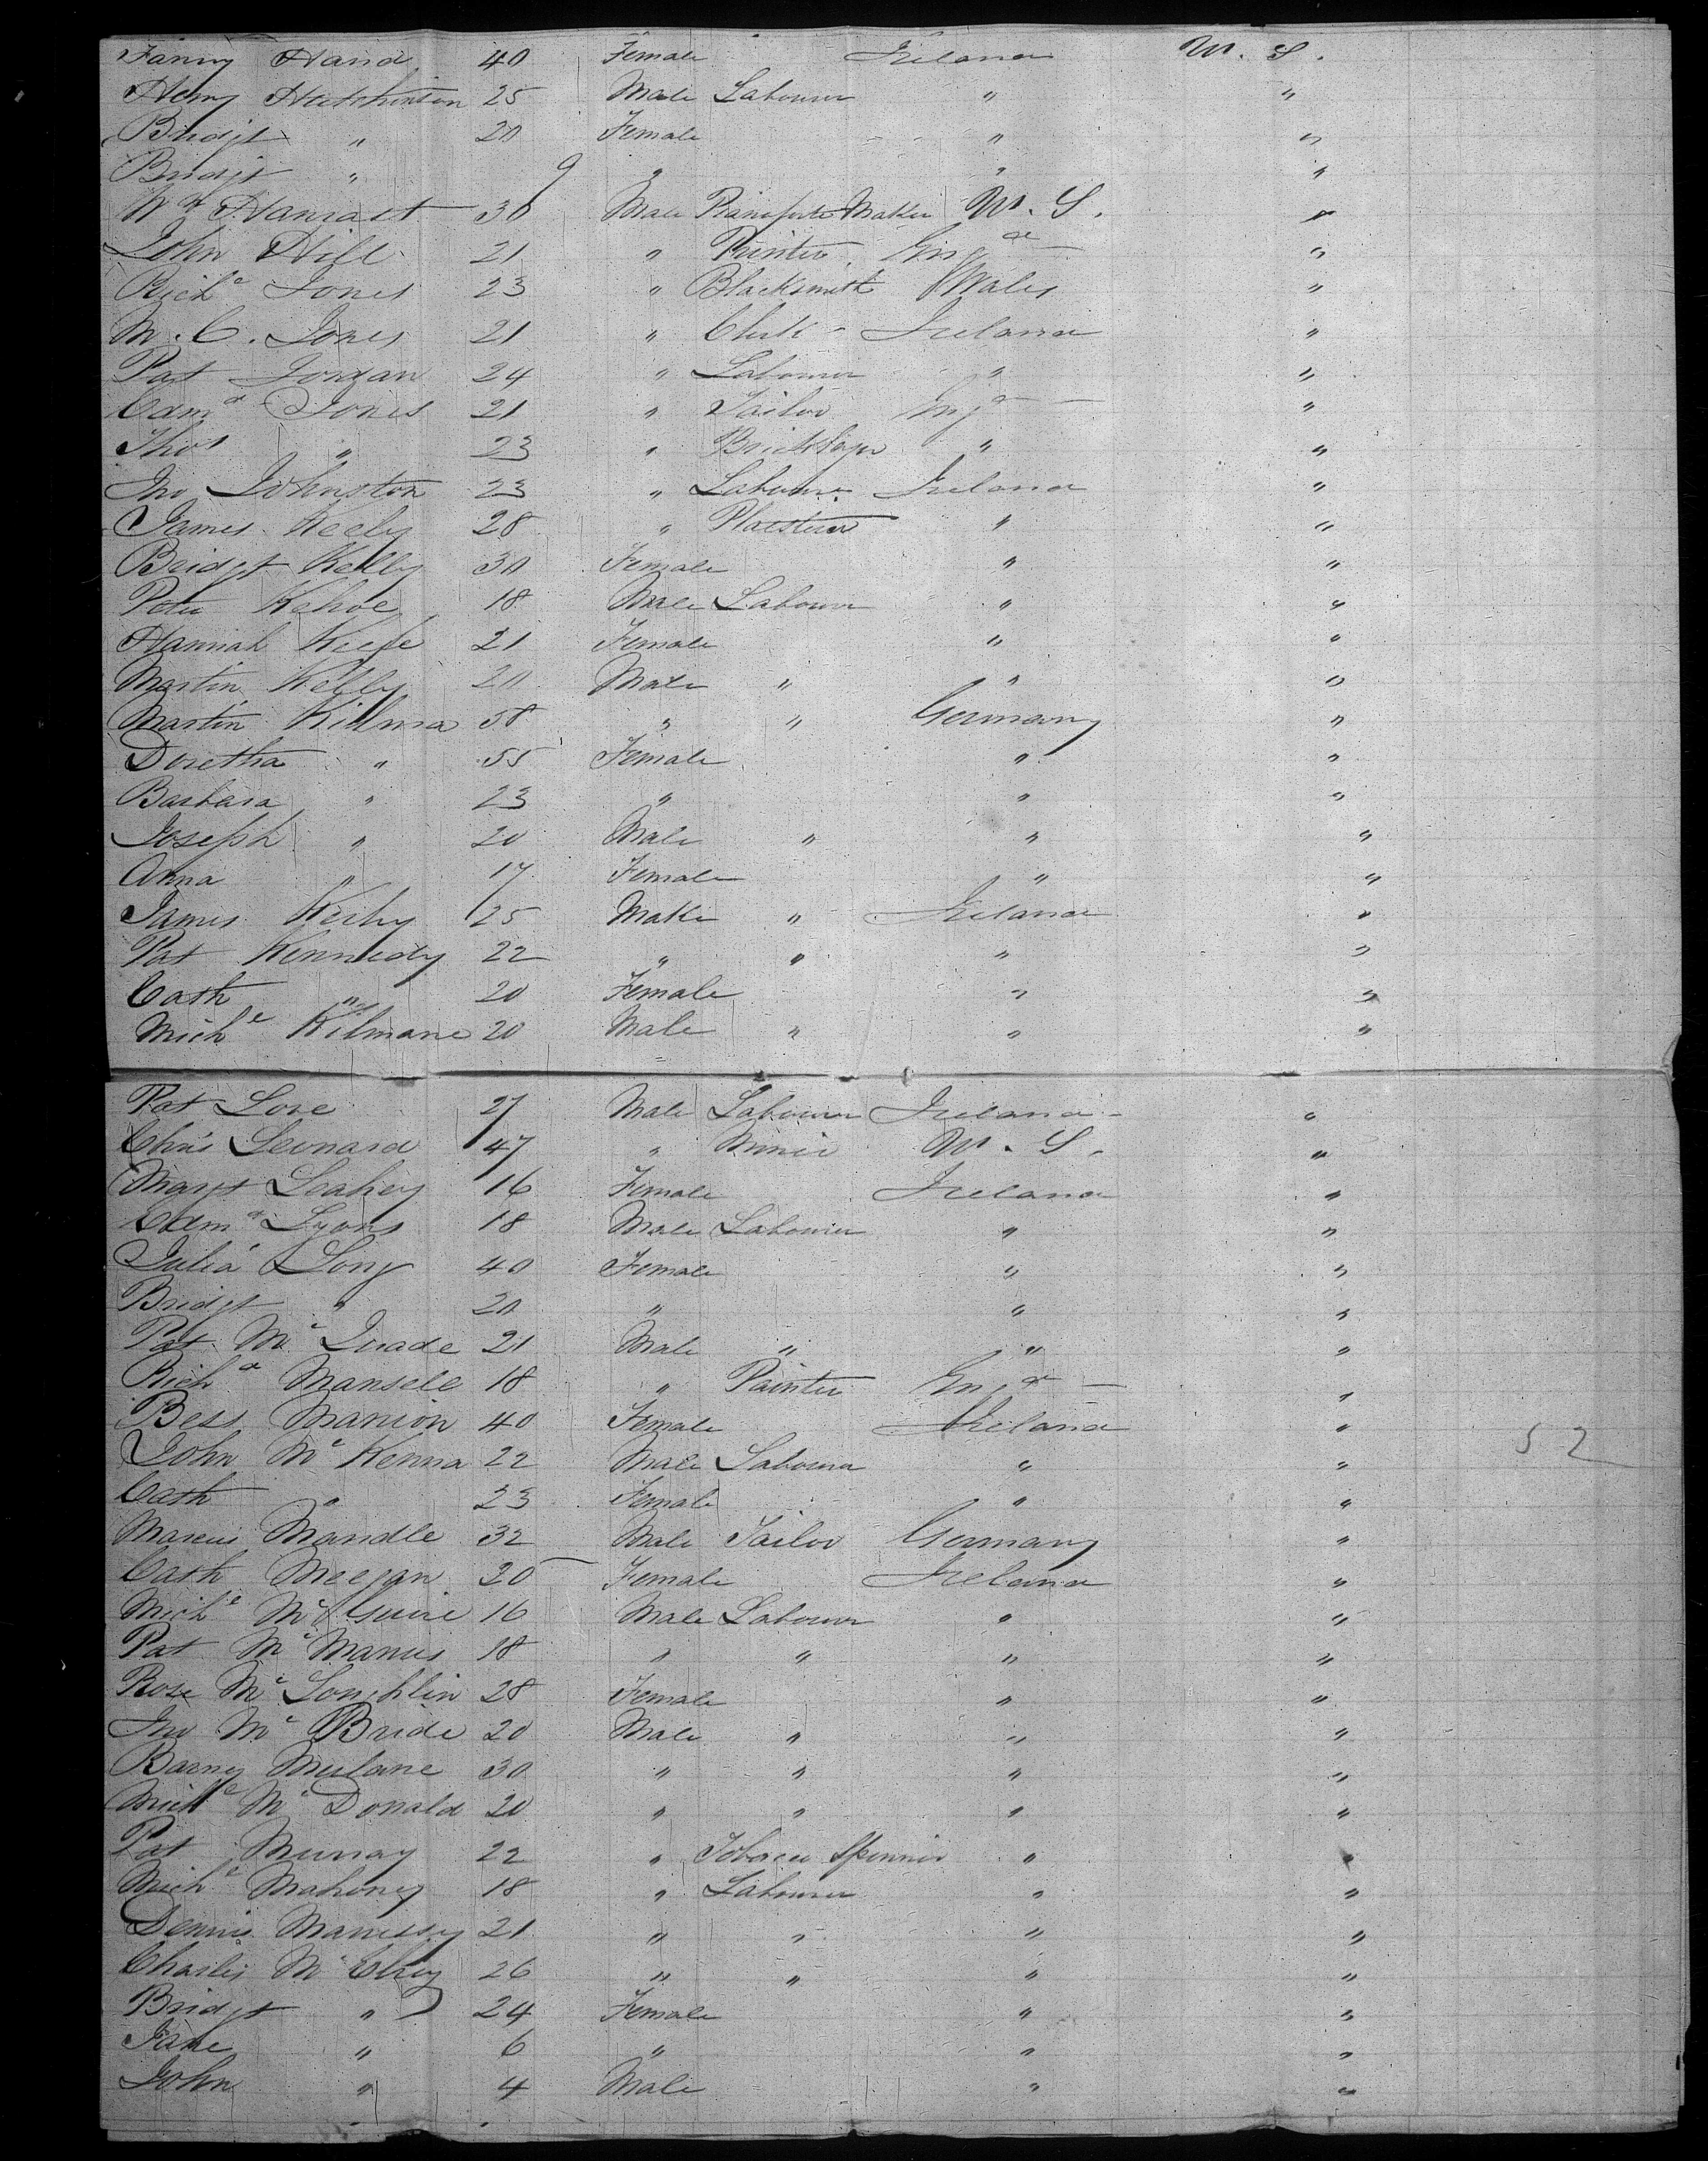 Fanny Hand 40 Female Ireland U. S.
Henry Hutchinson 25 Male Labourer " "
Bridgt " 20 Female " "
Bridgt " 9 " " "
Wm 30 Male Pianoforte Maker U. S. "
John Hill 21 " Printer Engd "
Richd Jones 23 " Blacksmith Wales "
M. C. Jones 21 " Clerk Ireland "
Pat Jordan 24 " Labourer " "
Edmd Jones 21 " Tailor Engd "
Thos " 23 " Bricklayer " "
Jno Johnston 23 " Labourer Ireland "
James Keely 28 " Plaisterer " "
Bridgt Kelly 30 Female " "
Peter Kehoe 18 Male Labourer " "
Hannah Keefe 21 Female " "
Martin Kelly 20 Male " " "
Martin Killma 58 " " Germany "
Doretha " 55 Female " "
Barbara " 23 " " "
Joseph " 20 Male " " "
Anna " 17 Female " "
James 25 Male " Ireland "
Pat Kennedy 22 " " " "
Cath " 20 Female " "
Michl Kilmane 20 Male " " "
Pat Love 27 Male Labourer Ireland "
Chris Leonard 47 " Miner U. S. "
Margt Leahey 16 Female Ireland "
Edmd Lyons 18 Male Labourer " "
Julia Long 40 Female " "
Bridgt " 20 " " "
Pat Mc Quade 21 Male " " "
Richd Mansell 18 " Painter Engd "
Bess Manion 40 Female Ireland "
John Mc Kenna 22 Male Labourer " "
Cath " 23 Female " "
Marcus Mandle 32 Male Tailor Germany "
Cath Meegan 20 Female Ireland "
Michl Mc Guire 16 Male Labourer " "
Pat Mc Manus 18 " " " "
Rose Mc Loughlin 28 Female " "
Jno Mc Bride 20 Male " " "
Barney Mulane 30 " " " "
Michl Mc Donald 20 " " " "
Pat Murray 22 " Tobacco Spinner " "
Michl Mahoney 18 " Labourer " "
Dennis 21 " " " "
Charles Mc Elroy 26 " " " "
Bridgt " 24 Female " "
Jane " 6 " " "
John " 4 Male " "
52